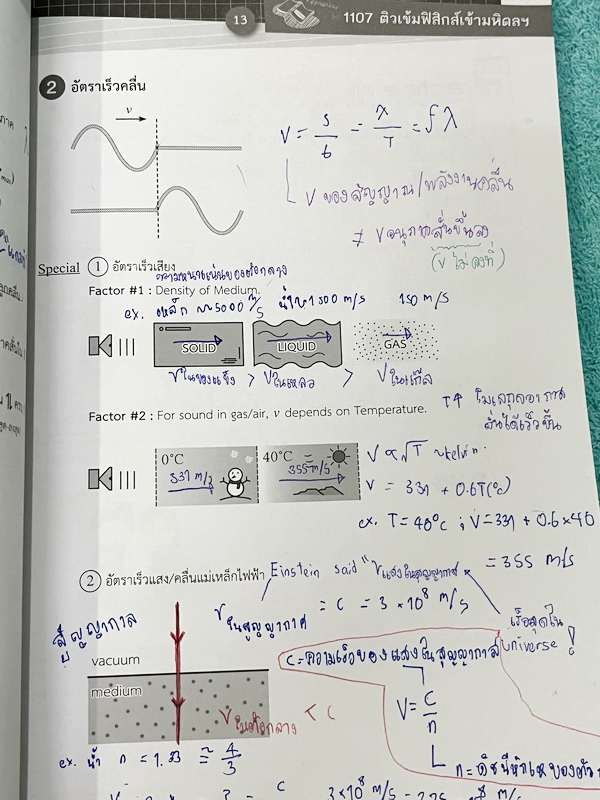 13
1107 ติวเข้มฟิสิกส์เข้ามหิดลฯ
2 อัตราเร็วคลื่น
v
V = s/t = λ/T = fλ
v ของสัญญาณ/พลังงานคลื่น
≠ v อนุภาคสั่นขึ้นลง
(v ไม่คงที่)
Special 1 อัตราเร็วเสียง
ความหนาแน่นของตัวกลาง
Factor #1 : Density of Medium.
ex. เหล็ก ~5000 m/s น้ำ 1500 m/s 150 m/s
SOLID LIQUID GAS
v ในของแข็ง > v ในเหลว > v ในแก๊ส
Factor #2 : For sound in gas/air, v depends on Temperature.
T↑ โมเลกุลอากาศ
สั่นได้เร็วขึ้น
0°C 40°C
331 m/s 355 m/s
V ∝ √T ~kelvin
V = 331 + 0.6T(°c)
ex. T = 40°c ; V = 331 + 0.6×40
= 355 m/s
2 อัตราเร็วแสง/คลื่นแม่เหล็กไฟฟ้า
Einstein said "v แสงในสุญญากาศ
v ในสุญญากาศ = c = 3 × 10⁸ m/s
เร็วสุดใน
universe!
สุญญากาศ
c = ความเร็วของแสงในสุญญากาศ
vacuum
medium
V = c/n
v ในตัวกลาง < c
n = ดัชนีหักเหของตัว
ex. น้ำ n = 1.33 ≅ 4/3
3×10⁸ m/s